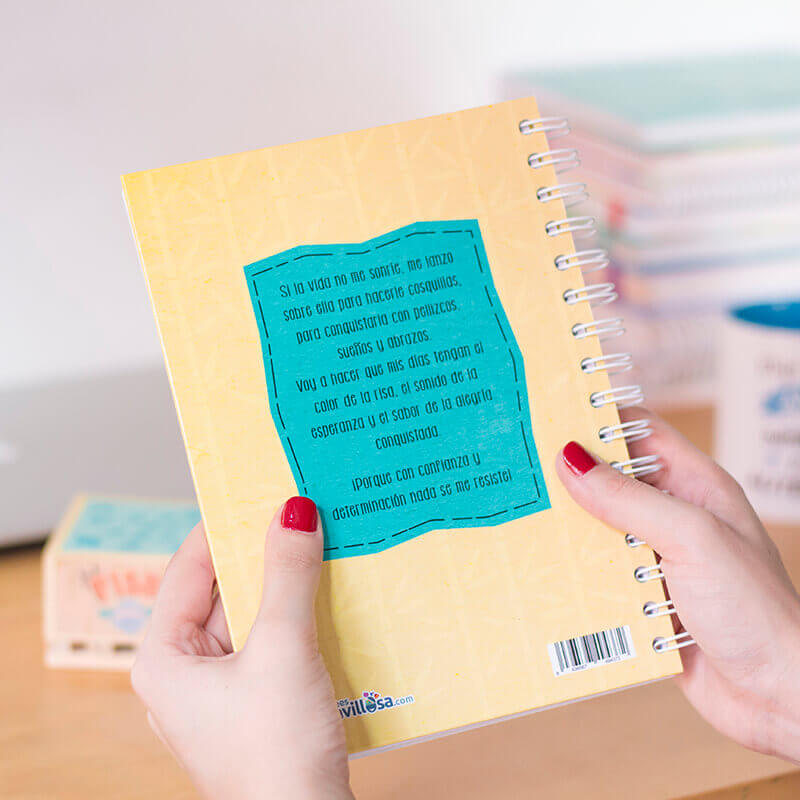 Si la vida no me sonríe, me lanzo
sobre ella para hacerle cosquillas,
para conquistarla con pellizcos,
sueños y abrazos.
Voy a hacer que mis días tengan el
color de la risa, el sonido de la
esperanza y el sabor de la alegría
conquistada.
¡Porque con confianza y
determinación nada se me resiste!
villosa.com